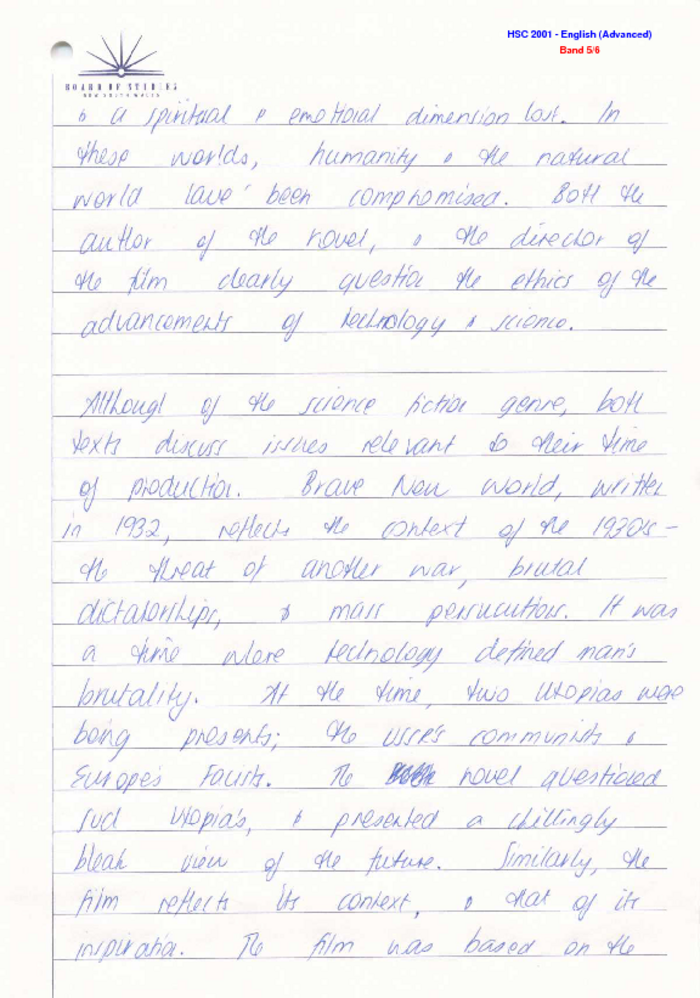 HSC 2001 - English (Advanced)
Band 5/6
BOARD OF STUDIES
NEW SOUTH WALES
& a spiritual & emotional dimension lost. In
these worlds, humanity & the natural
world have been compromised. Both the
author of the novel, & the director of
the film clearly question the ethics of the
advancements of technology & science.
Although of the science fiction genre, both
texts discuss issues relevant to their time
of production. Brave New World, written
in 1932, reflects the context of the 1930's -
the threat of another war, brutal
dictatorships, & mass persucution. It was
a time where technology defined man's
brutality. At the time, two Utopias were
being presents; the USSR's communists &
Europe's Facists. The novel questioned
such Utopia's, & presented a chillingly
bleak view of the future. Similarly, the
film reflects its context, & that of its
inspiration. The film was based on the